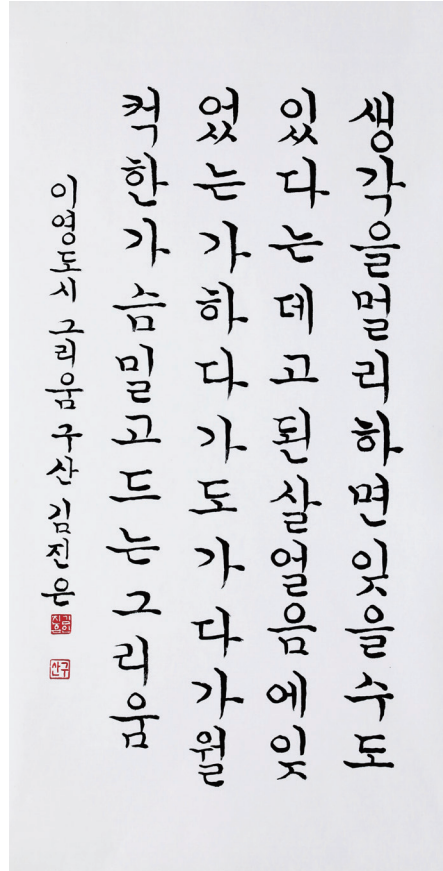 생각을멀리하면잊을수도
있다는데고된살얼음에잊
었는가하다가도가다가월
컥한가슴밀고드는그리움
이영도시 그리움 구산 김진은
김진은
구산